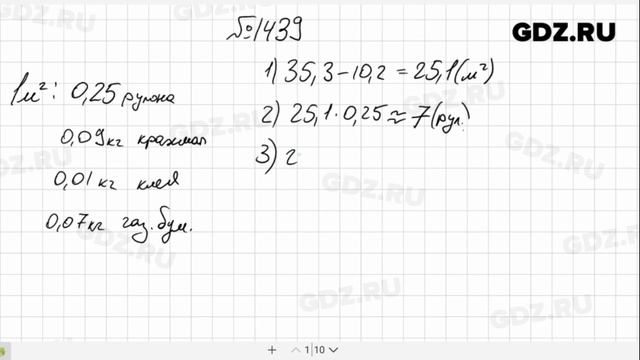 №1439
GDZ.RU
1м²: 0,25 рулона
0,09кг крахмал
0,01 кг клея
0,07кг газ. бум.
1) 35,3-10,2 = 25,1(м²)
2) 25,1·0,25 ≈ 7(рул.)
3) 2
+ 1 | 10